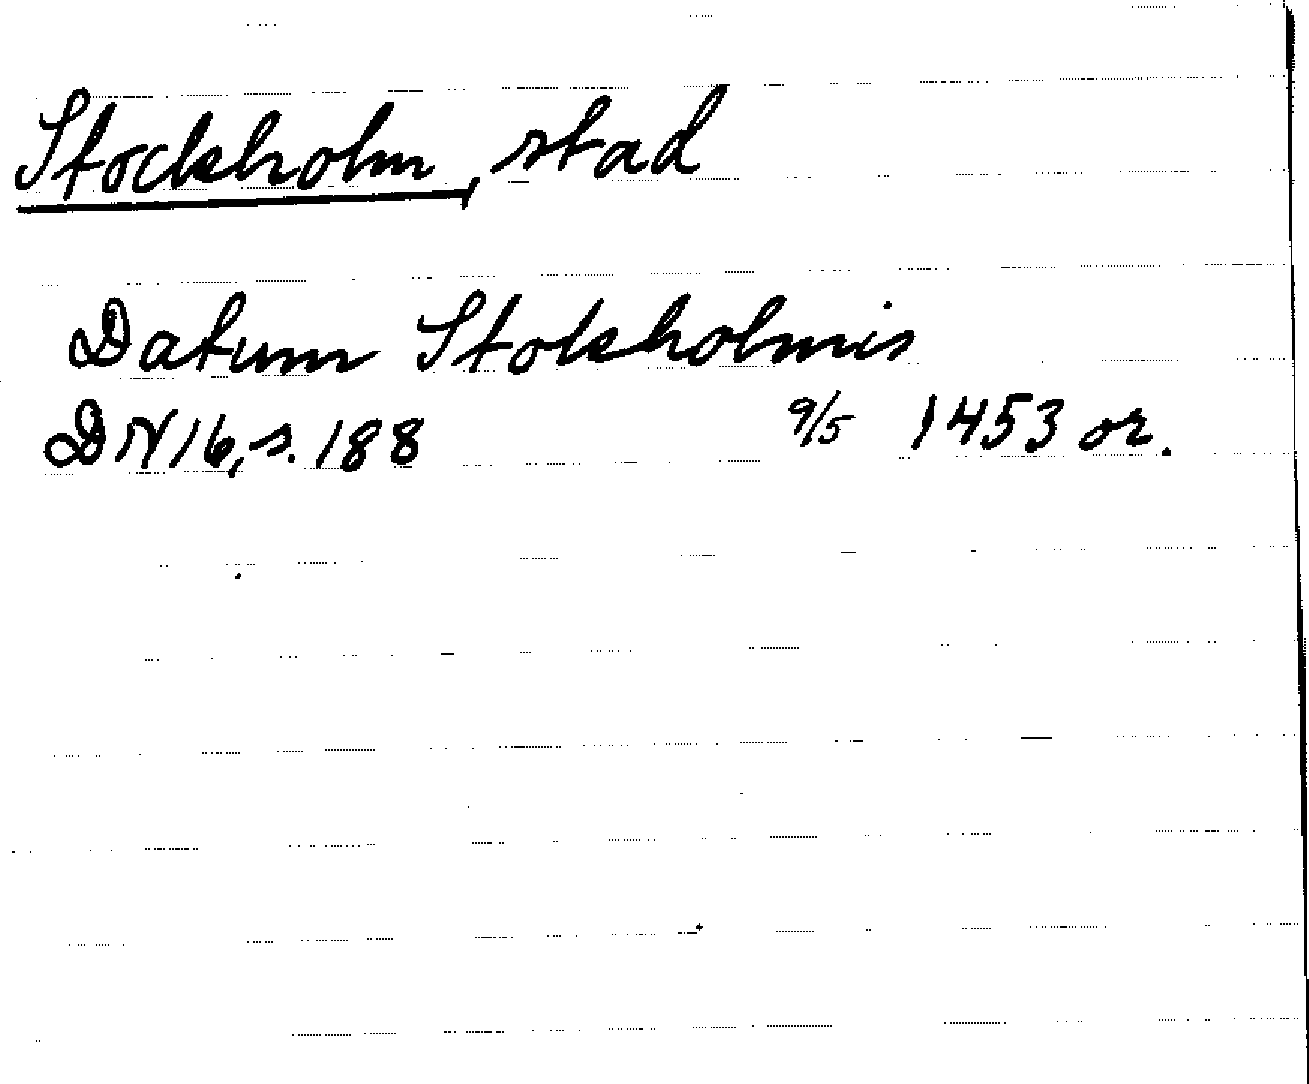 Stockholm, stad
Datum Stoksholmis
DN 16, s. 188 9/5 1453 or.